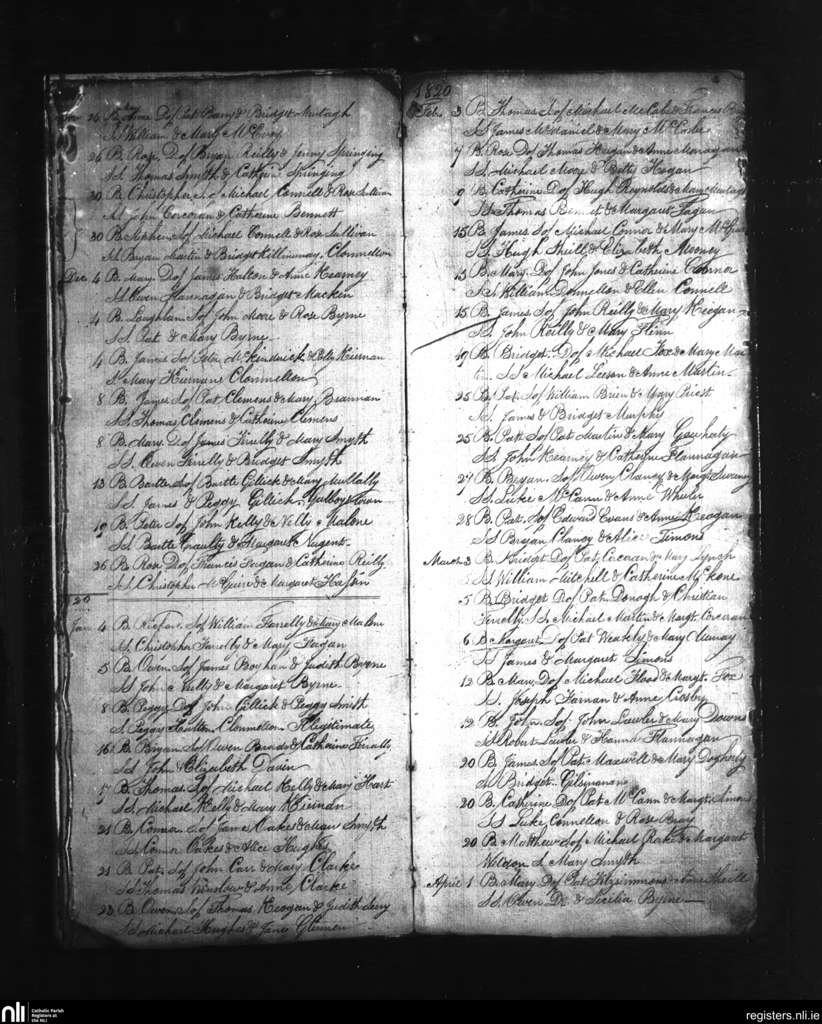 26 B. Anne Dof Pat Barry & Bridget Murtagh
Ss William & Mary McEvoy
26 B. Rose Dof Bryan Reilly & Jenny Springing
Ss Thomas Smith & Cathrin Springing
30 B. Christopher of Michael Connell & Rose Sullivan
Ss John Corcoran & Catherine Bennett
30 B. Stephen Sof Michael Connell & Rose Sullivan
Ss Bryan Martin & Bridget Clonmellon
Dec. 4 B. Mary Dof James Hulton & Anne Kearney
Ss Owen Flannagan & Bridget Mackin
4 B. Loughlin Sof John Moore & Rose Byrne
Ss Pat & Mary Byrne
4 B. James Sof Peter & Kiernan
S. Mary Kiernan Clonmellon
8 B. James Sof Pat Clemens & Mary Brannan
Ss Thomas Clemens & Catherine Clemens
8 B. Mary Dof James Finelly & Mary Smyth
Ss. Owen Finelly & Bridget Smyth
13 B. Bartle Sof Bartle Gillick & Mary Mullally
Ss James & Peggy Gillick
19 B. Peter Sof John Kelly & Malone
Ss Bartle & Margaret Nugent
26 B. Rose Dof Francis Fagan & Catherine Reilly
Ss Christopher McGuire & Margaret
20
Jan. 4 B. Sof William Farrelly & Mary
Ss Christopher Farrelly & Mary Fagan
5 B. Owen Sof James Boyhan & Judith Byrne
Ss John & Margaret Byrne
8 B. Peggy Dof John Gillick & Peggy Smith
S. Peggy Clonmellon Illegitimate
16 B. Bryan Sof Owen & Catherine
Ss John & Elizabeth
17 B. Thomas Sof Michael Kelly & Mary Hart
Ss Michael Kelly & Mary
21 B. Connor of James Oakes & Smyth
Ss Connor Oakes & Alice Hughes
21 B. Pat Sof John Carr & Mary Clarke
Ss Thomas & Anne Clarke
23 B. Owen Sof Thomas Keogan & Judith
Ss Michael Hughes & Jane Glennon
1820
Feb. 3 B. Thomas Sof Michael McCabe & Frances
Ss James McDaniel & Mary McCabe
7 B. Rose Dof Thomas & Anne Monaghan
Ss Michael Moore & Betty Hogan
9 B. Catherine Dof Hugh Reynolds & Mary Murtagh
Ss Thomas Bennet & Margaret Fagan
15 B. James Sof Michael Connor & Mary
Ss Hugh & Elizabeth Mooney
13 B. Mary Dof John Jones & Catherine Connor
Ss William Donnellon & Ellen Connell
15 B. James Sof John Reilly & Mary Keogan
Ss John Reilly & Mary Flinn
19 B. Bridget Dof Michael Fox & Mary
Ss Michael Leeson & Anne Martin
25 B. Pat Sof William Brien & Mary Priest
Ss James & Bridget Murphy
25 B. Patt Sof Pat Martin & Mary
Ss John Kearney & Catherine Flannagan
27 B. Bryan Sof Owen Clancy & Margt Sweeney
Ss Luke McCann & Anne Wheeler
28 B. Pat Sof Edward Evans & Anne Keogan
Ss Bryan Clancy & Alice Simons
March 3 B. Bridget Dof Pat Corcoran & Mary Lynch
Ss William Mitchell & Catherine McKone
5 B. Bridget Dof Pat Donogh & Christian
Ss Michael Martin & Margt. Corcoran
6 B. Margaret Dof Pat Weakly & Mary Murray
Ss James & Margaret Simons
12 B. Mary Dof Michael Flood & Margt. Fox
Ss. Joseph Farnan & Anne Crosby
12 B. John Sof John Lawler & Mary Downs
Ss Robert Lawler & Hanna Flannagan
20 B. James Sof Pat Maxwell & Mary Dogherty
S Bridget
20 B. Catherine Dof Pat McCann & Margt. Simons
Ss Luke Connellon & Rose Bray
20 B. Matthew Sof Michael & Margaret
Weldon S. Mary Smyth
April 1 B. Mary Dof Pat Fitzsimmons
Ss. Owen Do & Cecilia Byrne
nli Catholic Parish
Registers at
the NLI
registers.nli.ie